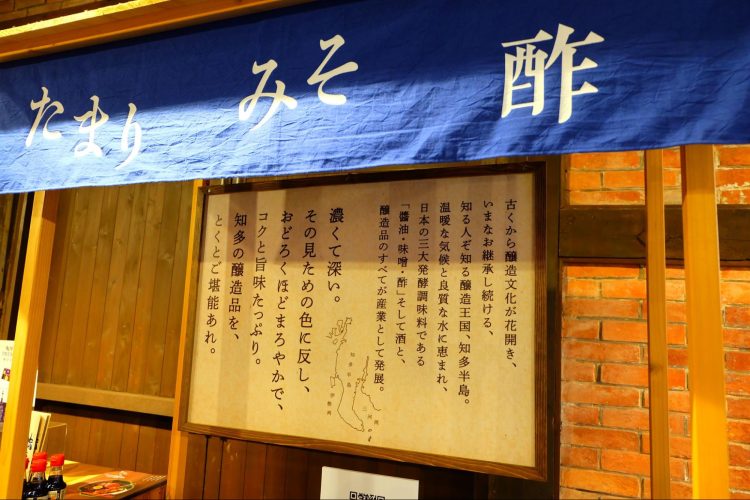 たまり みそ 酢
古くから醸造文化が花開き、
いまなお継承し続ける、
知る人ぞ知る醸造王国、知多半島。
温暖な気候と良質な水に恵まれ、
日本の三大発酵調味料である
「醬油・味噌・酢」そして酒と、
醸造品のすべてが産業として発展。
濃くて深い。
その見ための色に反し、
おどろくほどまろやかで、
コクと旨味たっぷり。
知多の醸造品を、
とくとご堪能あれ。
知多半島
伊勢湾
三河湾